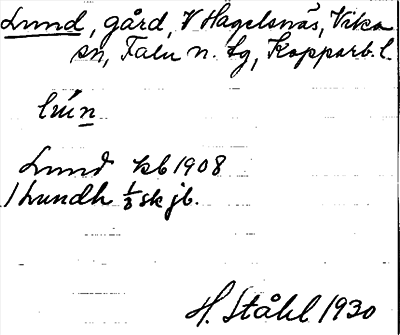 Lund, gård, V Hagelsnäs, Vika
sn, Falu n. tg, Kopparb. l.
lún
Lund kb 1908
1 lundh ⅓ sk jb.
H. Ståhl 1930